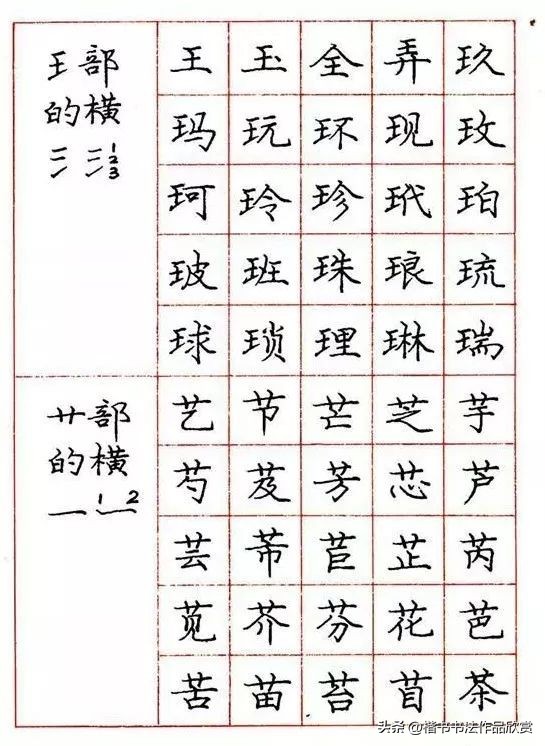 王部
的横
123
王玉全弄玖
玛玩环现玫
珂玲珍玳珀
玻班珠琅琉
球琐理琳瑞
艹部
的横
12
艺节芒芝芋
芍芨芳芯芦
芸芾苣芷芮
苋芥芬花芭
苦苗苔苜茶
头条@楷书书法作品欣赏